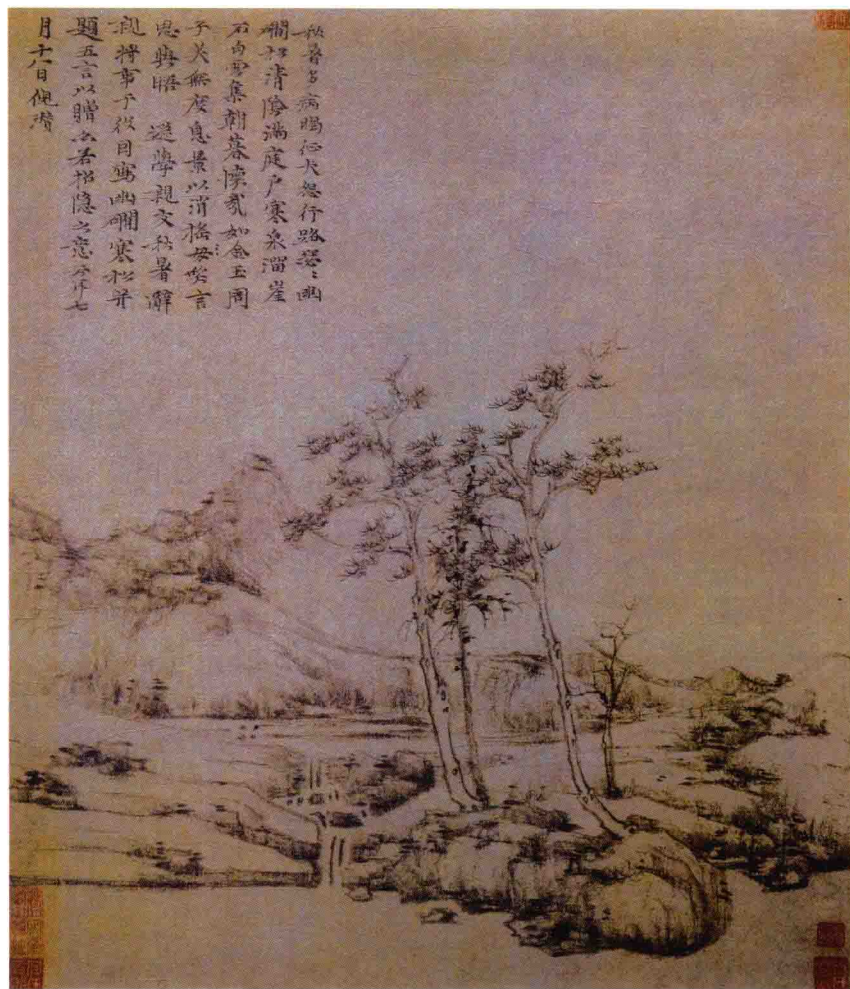 秋暑多病暍征夫怨行路瑟〻幽
磵松清陰滿庭户寒泉溜崖
石白雲集朝暮懷哉如金玉周
子美無度息景以消搖咲言
思與晤 遜學親友秋暑辭
親將事于役因寫幽磵寒松并
題五言以贈亦若招隱之意七
月十八日倪瓚